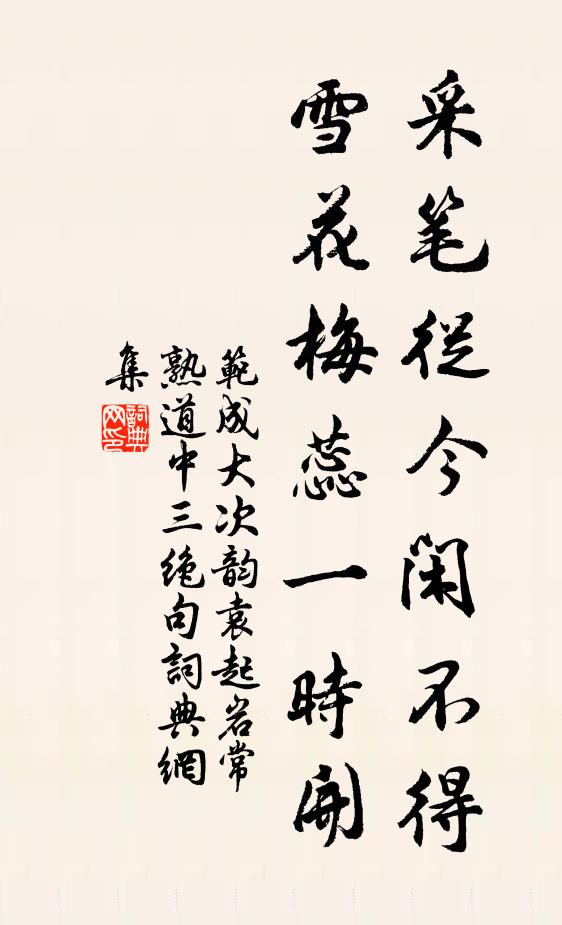 采笔従今闲不得
雪花梅蕊一時開
範成大次韵袁起岩常
熟道中三绝句詞典網
集
詞典
网印